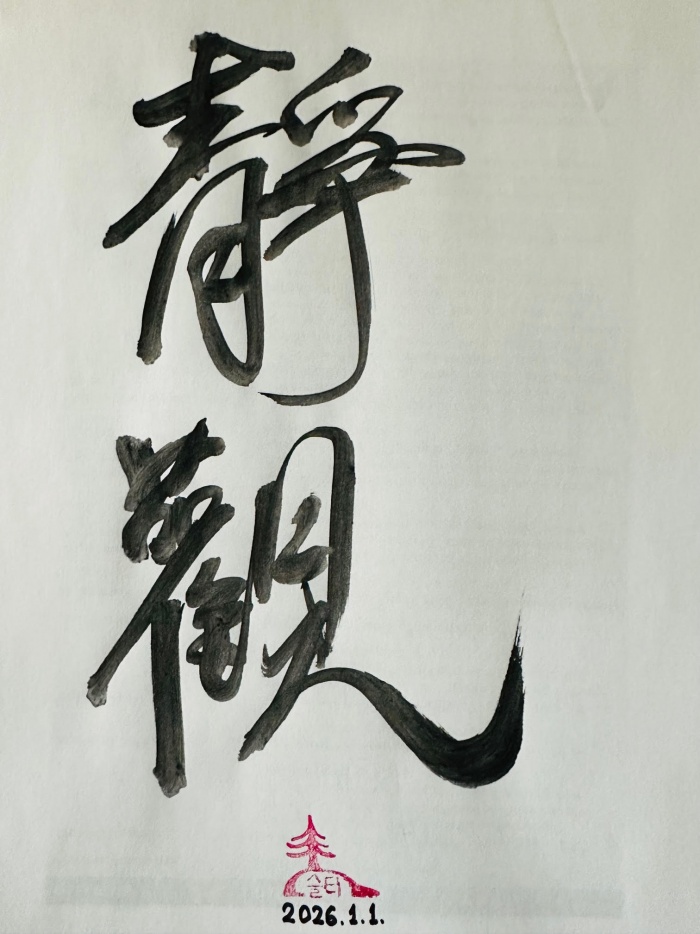 靜
觀
솔타
2026.1.1.